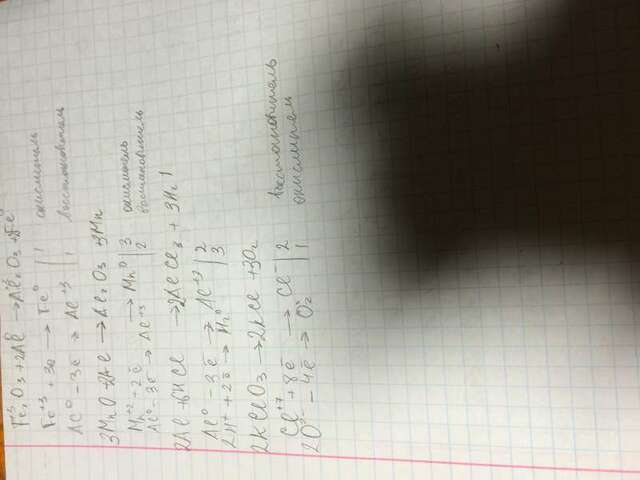 Fe₂⁺³O₃ + 2Al⁰ → Al₂⁺³O₃ + 2Fe⁰
Fe⁺³ + 3e → Fe⁰ | 1 окислитель
Al⁰ - 3e → Al⁺³ | 1 восстановитель
3MnO + 2Al → Al₂O₃ + 3Mn
Mn⁺² + 2e → Mn⁰ | 3 окислитель
Al⁰ - 3e → Al⁺³ | 2 восстановитель
2Al + 6HCl → 2AlCl₃ + 3H₂↑
Al⁰ - 3e → Al⁺³ | 2
2H⁺ + 2e → H₂⁰ | 3
2KClO₃ → 2KCl + 3O₂
Cl⁺⁷ + 8e → Cl⁻ | 2 восстановитель
2O⁻² - 4e → O₂⁰ | 1 окислитель